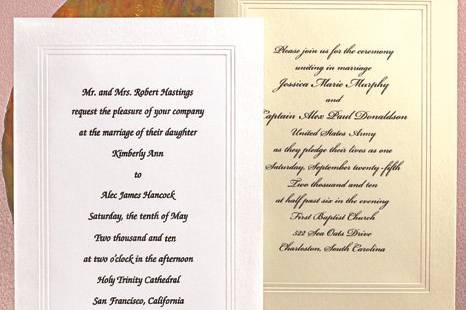 Mr. and Mrs. Robert Hastings
request the pleasure of your company
at the marriage of their daughter
Kimberly Ann
to
Alec James Hancock
Saturday, the tenth of May
Two thousand and ten
at two o'clock in the afternoon
Holy Trinity Cathedral
San Francisco, California
Please join us for the ceremony
uniting in marriage
Jessica Marie Murphy
and
Captain Alex Paul Donaldson
United States Army
as they pledge their lives as one
Saturday, September twenty-fifth
Two thousand and ten
at half past six in the evening
First Baptist Church
522 Sea Oats Drive
Charleston, South Carolina